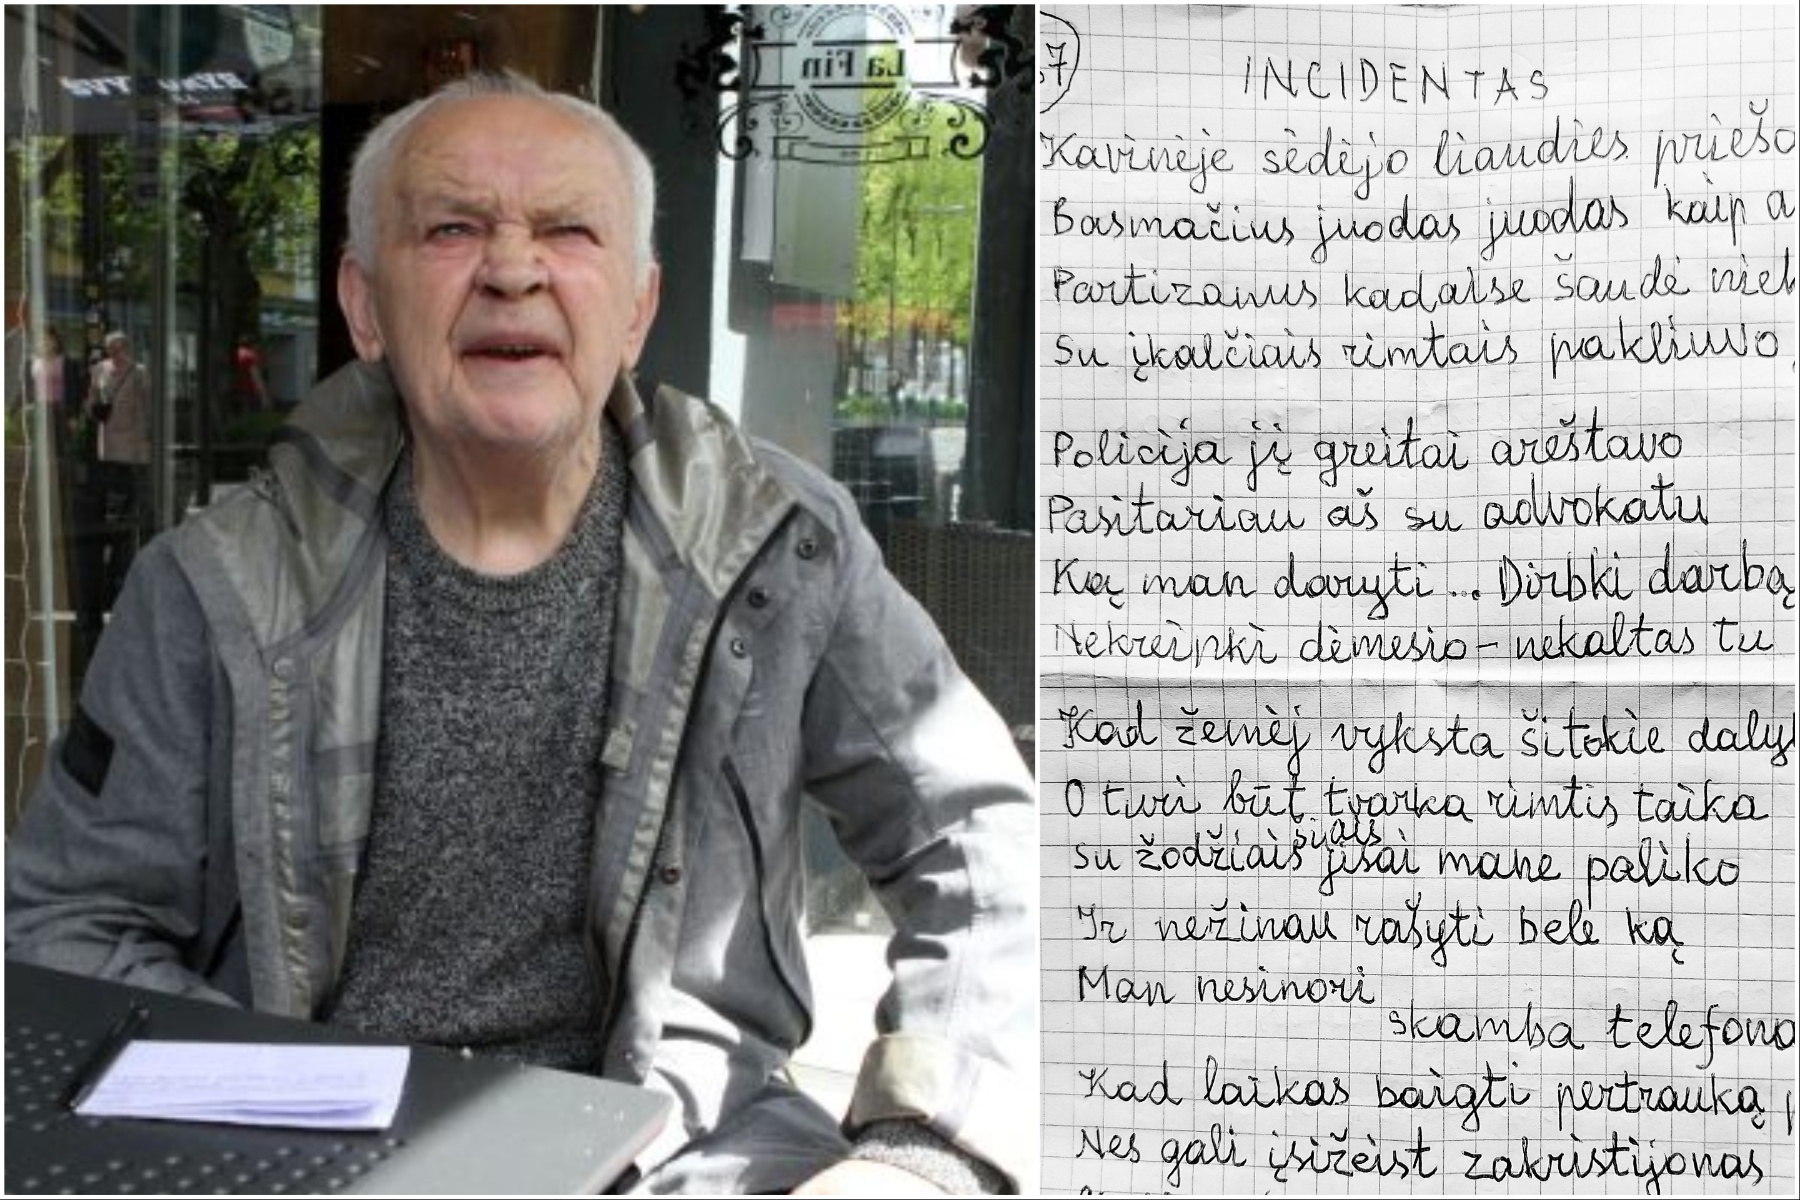 La Fin
37
INCIDENTAS
Kavinėje sėdėjo liaudies priešo
Basmačius juodas juodas kaip a
Partizanus kadaise šaudė niek
Su įkalčiais rimtais pakliuvo
Policija jį greitai areštavo
Pasitariau aš su advokatu
Ką man daryti... Dirbki darbą
Nekreipki dėmesio - nekaltas tu
Kad žemėj vyksta šitokie dalyk
O turi būt tvarka rimtis taika
šiais
su žodžiais jisai mane paliko
Ir nežinau rašyti bele ką
Man nesinori
skamba telefona
Kad laikas baigti pertrauką p
Nes gali įsižeist zakristijonas